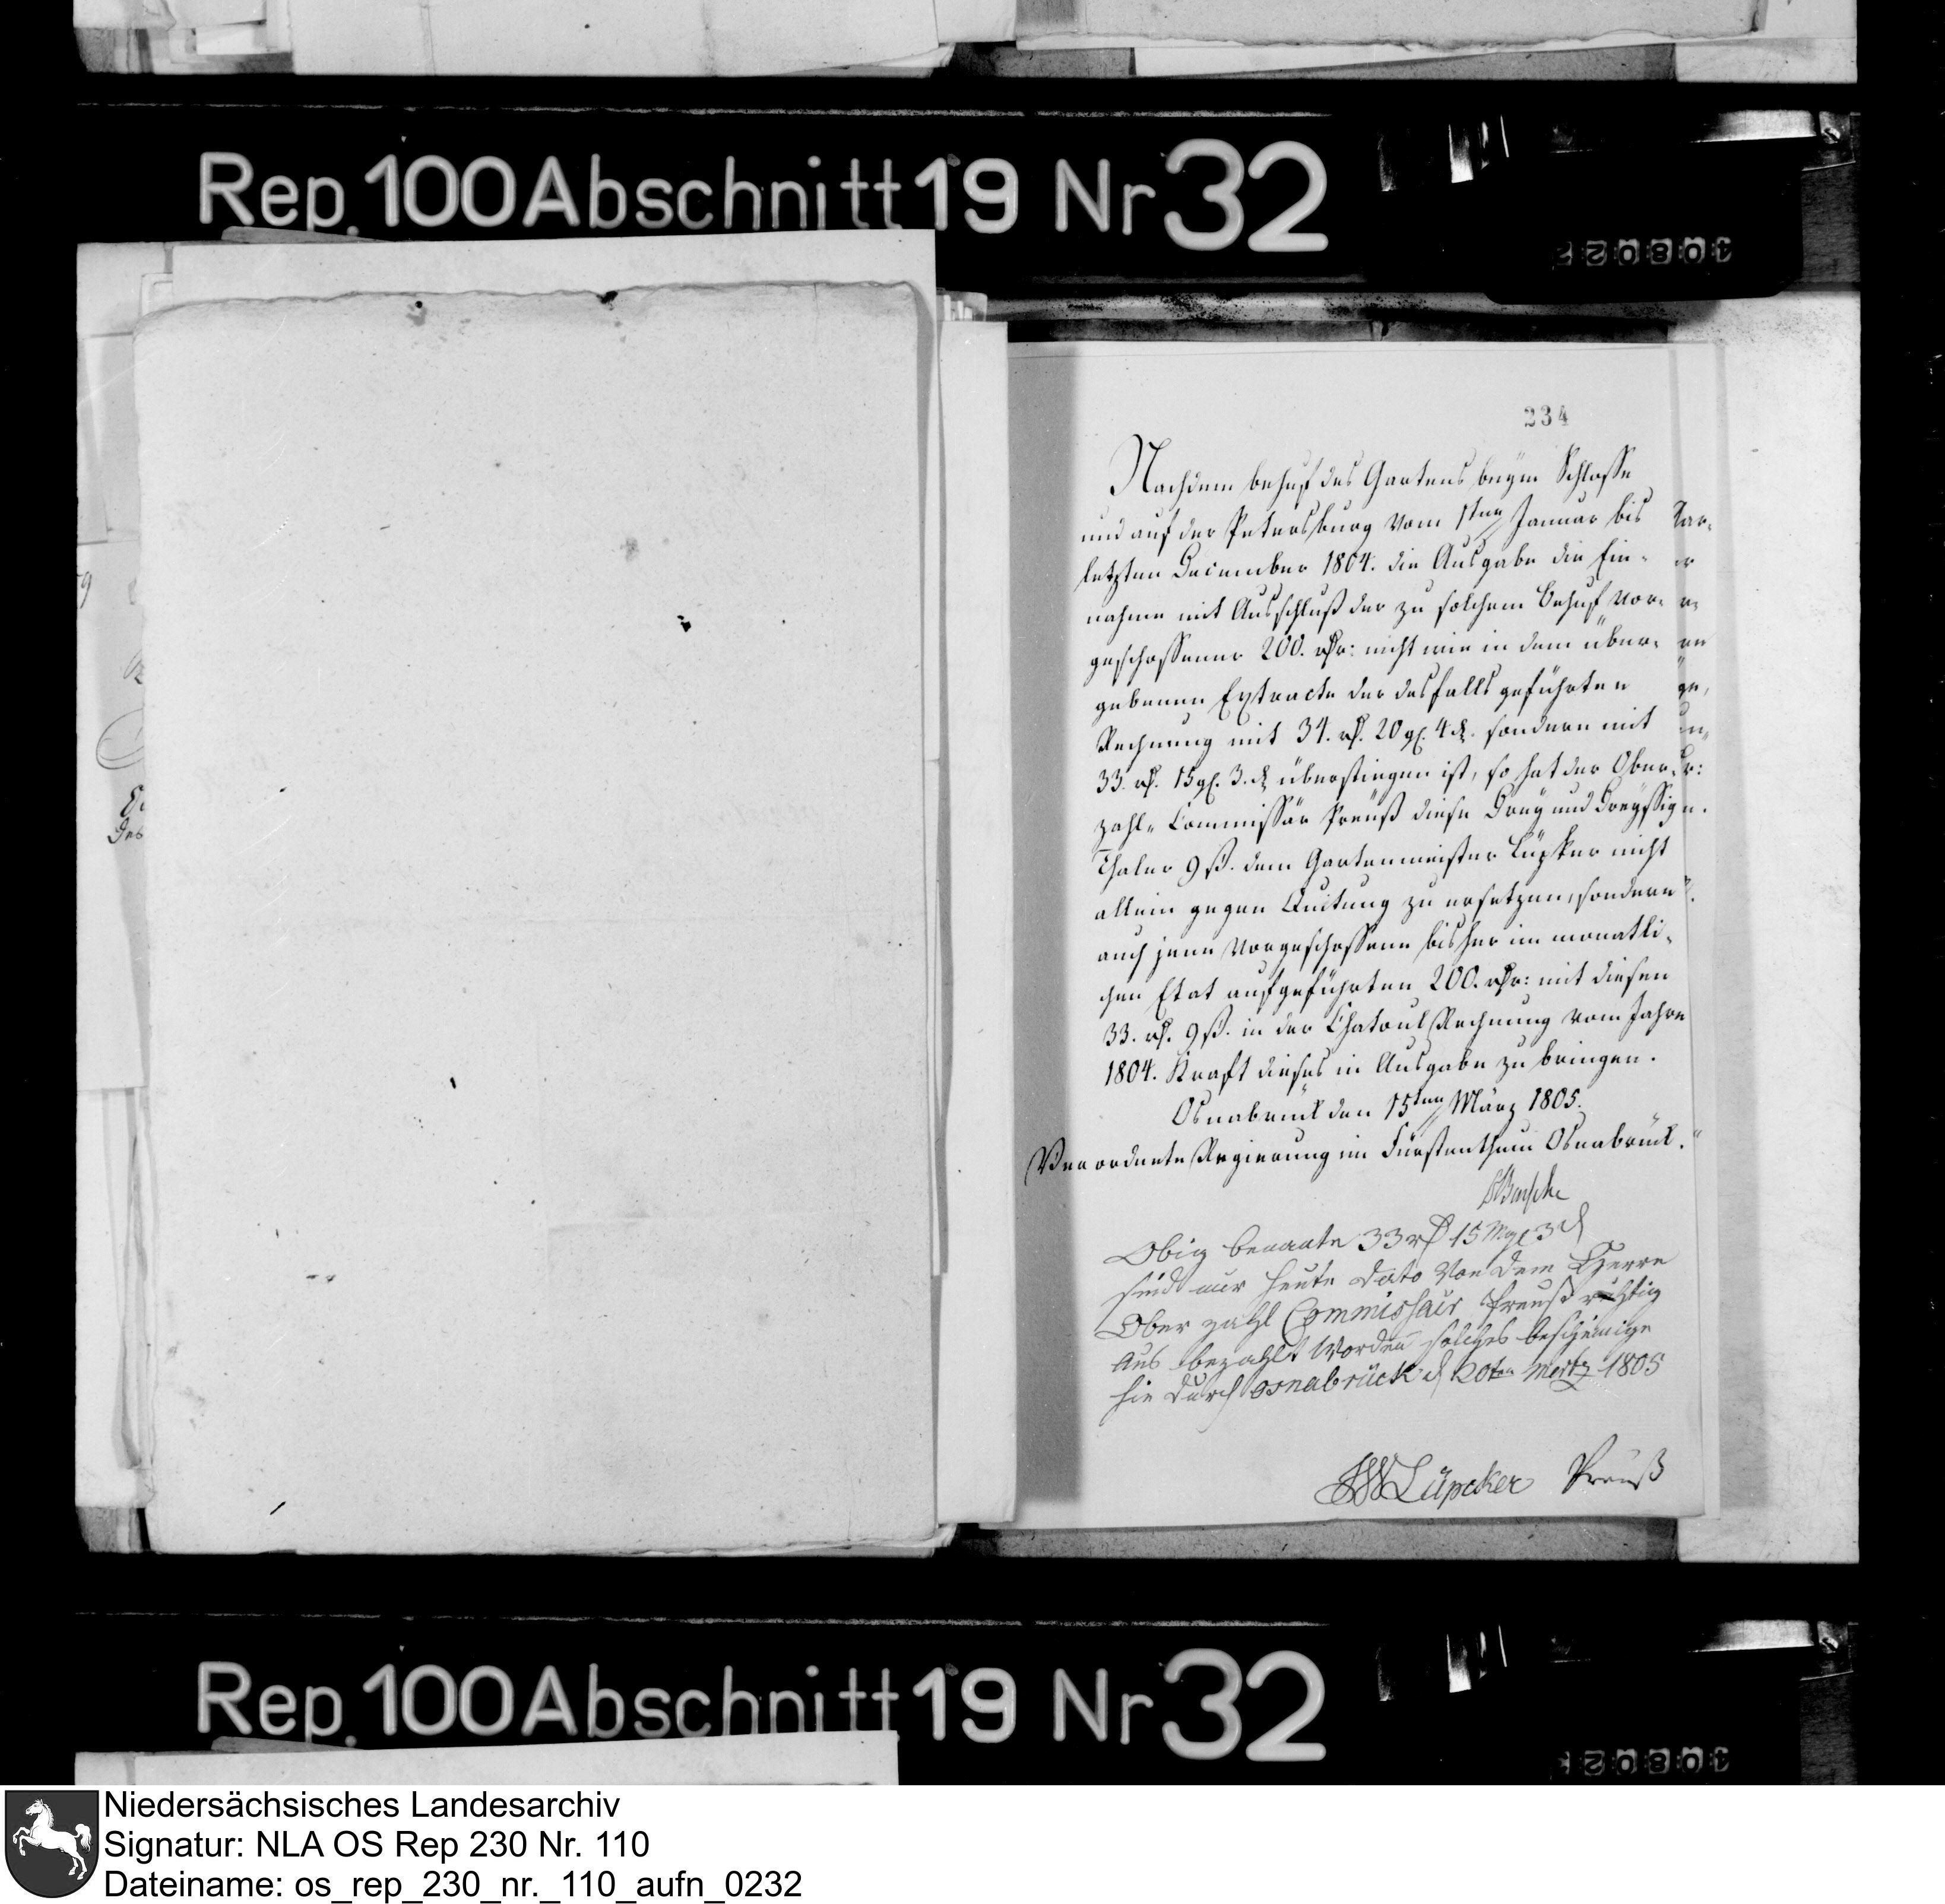 Rep. 100 Abschnitt 19 Nr 32
234
Nachdem behuf des Gartens beym Schlosse
und auf der Petersburg vom 1ten Januar bis
letzten December 1804. die Ausgabe die Ein-
nahme mit Ausschluß der zu solchem Behuf vor-
geschossener 200. rthr: nicht wie in dem über-
gebenen Extracte der desfalls geführten
Rechnung mit 34. rt. 20 gl. 4 d. sondern mit
33. rt. 15 gl. 3. d überstiegen ist, so hat der Ober-
zahl- Commissär Preuß diese Drey und Dreyssig
Thaler 9 ß. dem Gartenmeister Lüpker nicht
allein gegen Quitung zu ersetzen, sondern
auch jene vorgeschossene bisher im monatli-
chen Etat aufgeführten 200. rthr: mit diesen
33. rt. 9 ß. in der Chatoul Rechnung vom Jahre
1804. Kraft dieses in Ausgabe zu bringen.
Osnabrück den 15ten März 1805.
Verordnete Regierung im Fürstenthum Osnabrück.
Obig benante 33 rt 15 mgl 3 d
sind mir heute dato von dem Herrn
Ober zahl Commissair Preuß richtig
aus bezahlt worden solches bescheinige
hie durch Osnabrück d 20ten Mertz 1805
Lüpcker Preuß
Rep. 100 Abschnitt 19 Nr 32
Niedersächsisches Landesarchiv
Signatur: NLA OS Rep 230 Nr. 110
Dateiname: os_rep_230_nr._110_aufn_0232